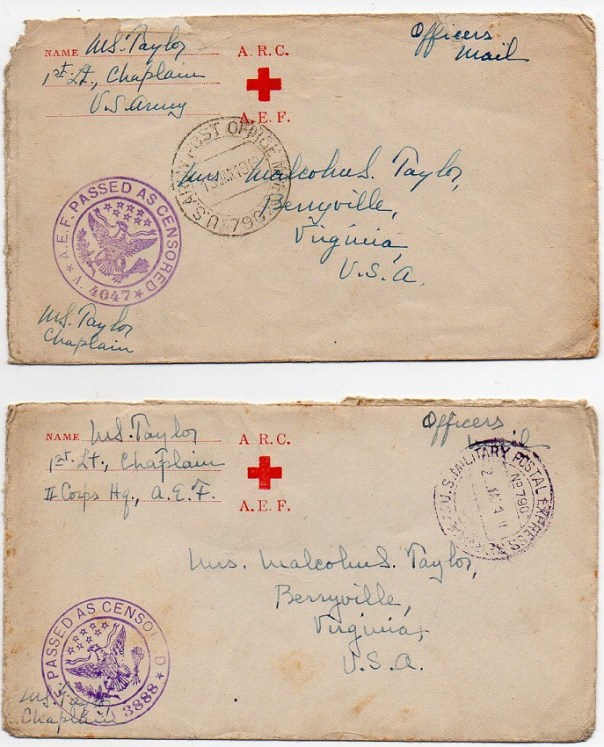 NAME M.S. Taylor
1st Lt., Chaplain
U.S. Army
A.R.C.
A.E.F.
Officers
Mail
U.S. ARMY POST OFFICE
790
Mrs. Malcolm S. Taylor,
Berryville,
Virginia,
U.S.A.
A.E.F. PASSED AS CENSORED
V. 4047
M.S. Taylor
Chaplain
NAME M.S. Taylor
1st Lt., Chaplain
II Corps Hq., A.E.F.
A.R.C.
A.E.F.
Officers
Mail
U.S. MILITARY POSTAL EXPRESS
No 790
Mrs. Malcolm S. Taylor,
Berryville,
Virginia,
U.S.A.
PASSED AS CENSO
3888
M.S. Taylor
Chaplain